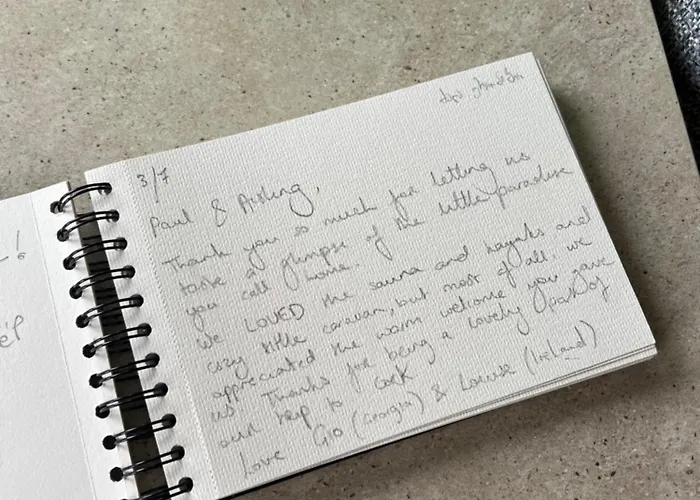 3/7
Paul & Aisling,
Thank you so much for letting us
taste glimpse of the little paradise
you call home.
We LOVED the sauna and kayaks and
cozy little caravan, but most of all, we
appreciated the warm welcome you gave
us! Thanks for being a lovely part of
our trip to Cork
Love GIO (Georgia) & Louise (Ireland)